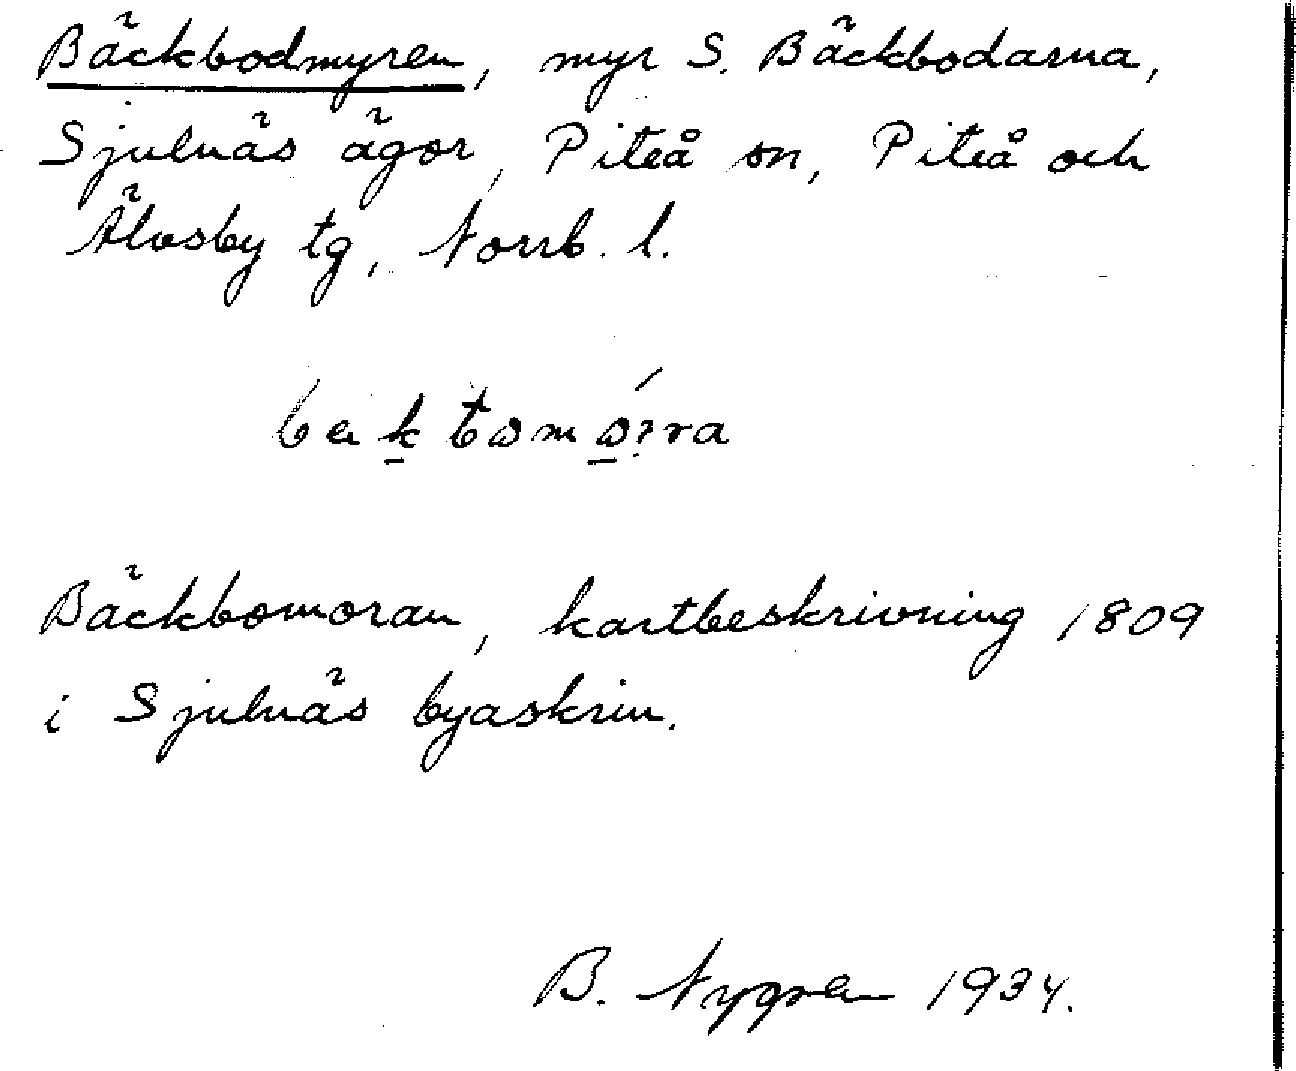 Bäckbodmyren, myr S. Bäckbodarna,
Sjulnäs ägor, Piteå sn, Piteå och
Älvsby tg, Norrb. l.
Bäckbomoran, kartbeskrivning 1809
i Sjulnäs byaskrin.
B. Nygren 1934.